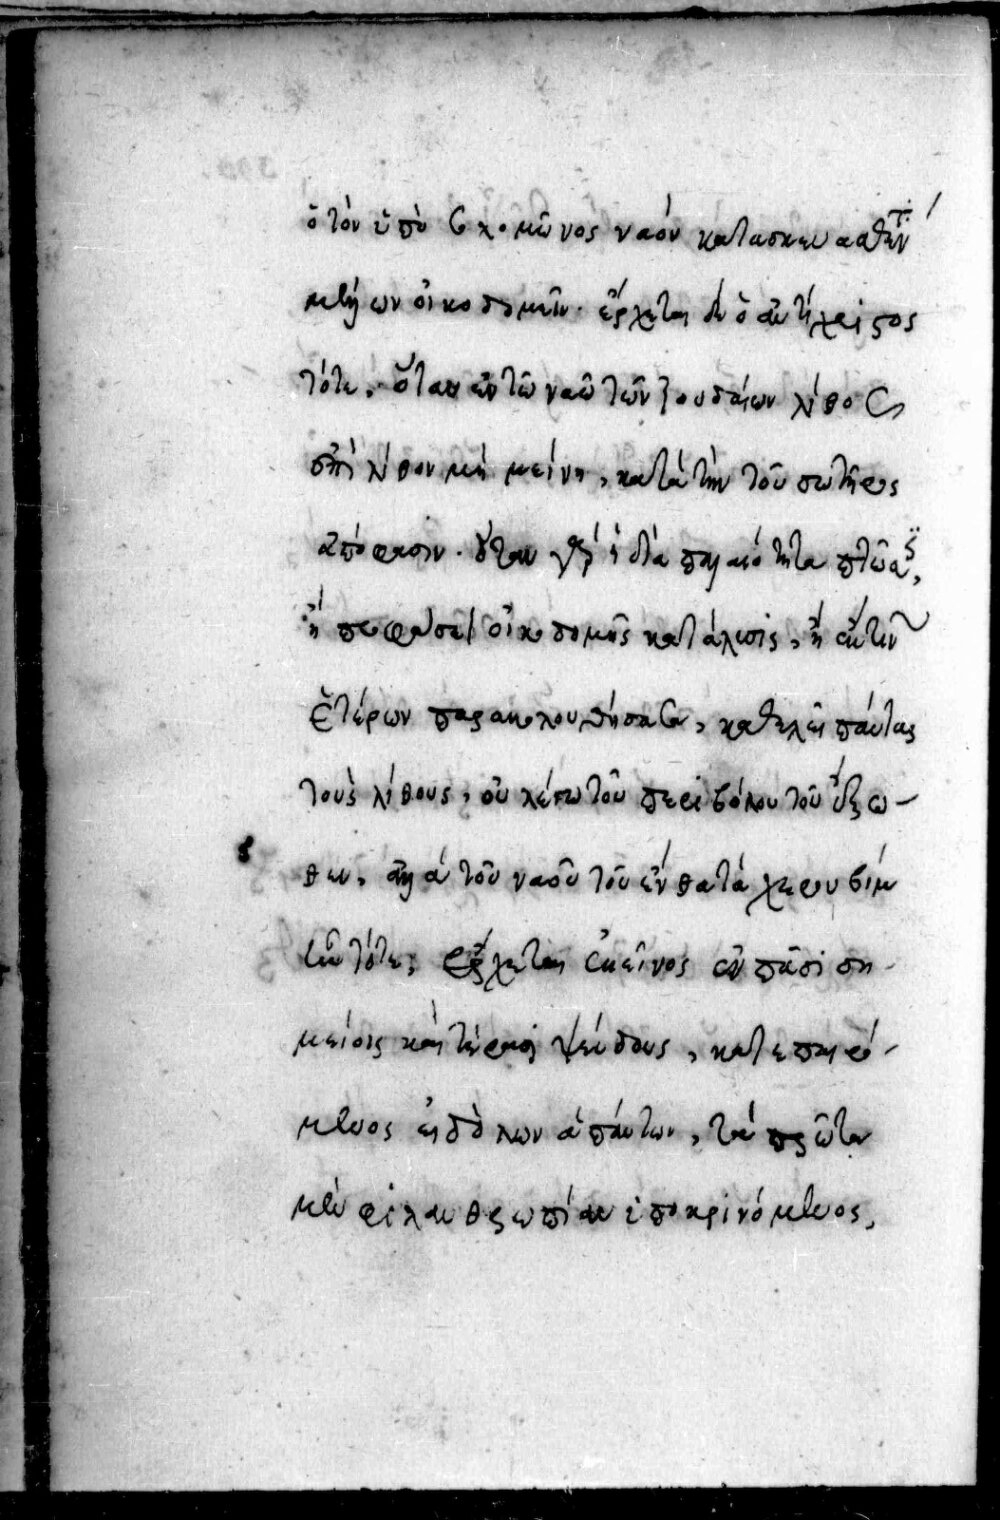 ὁ τὸν ὑπὸ Σολομῶνος ναὸν κατασκευασθέντα
μέλλων οἰκοδομεῖν. ἔρχεται δὲ ὁ ἀντίχριστος
τότε, ὅταν ἐν τῷ ναῷ τῶν Ἰουδαίων λίθος
ἐπὶ λίθον μὴ μείνη, κατὰ τὴν τοῦ σωτῆρος
ἀπόφασιν. ὅταν γὰρ ἢ διὰ παλαιότητα πτῶσις,
ἢ προφάσει οἰκοδομῆς κατάλυσις, ἢ ἐκ τῶν
ἑτέρων παρακολουθήσασα, καθελεῖ πάντας
τοὺς λίθους, οὐ λέγω τοῦ περιβόλου τοῦ ἔξω-
θεν, ἀλλὰ τοῦ ναοῦ τοῦ ἔνθα τὰ χερουβὶμ
ἦν τότε, ἔρχεται ἐκεῖνος ἐν πᾶσι ση-
μείοις καὶ τέρασι ψεύδους, κατεπαιρό-
μενος εἰδώλων ἁπάντων, τὰ πρῶτα
μὲν φιλανθρωπίαν ὑποκρινόμενος,